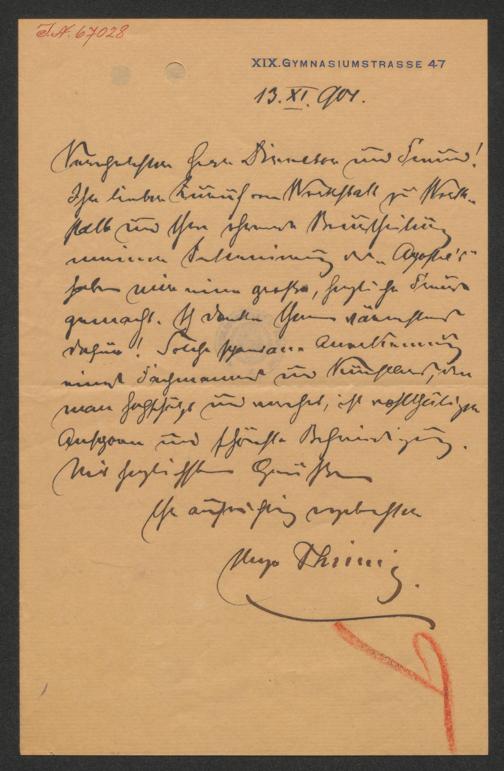 I.N. 67028
XIX. GYMNASIUMSTRASSE 47
13. XI. 901.
Verehrtester Herr Director und Freund!
Ihr lieber Zuruf von Werkstatt zu Werk-
statt und Ihre ehrende Beurtheilung
meiner Inscenirung des „Apostel's"
haben mir eine große, herzliche Freude
gemacht. Ich danke Ihnen wärmstens
dafür! Solche spontane Anerkennung
eines Fachmannes und Künstlers, den
man hochschätzt und verehrt, ist wohlthätiger
Ansporn und schönste Befriedigung.
Mit herzlichsten Grüßen
Ihr aufrichtig ergebenster
Hugo Thimig.